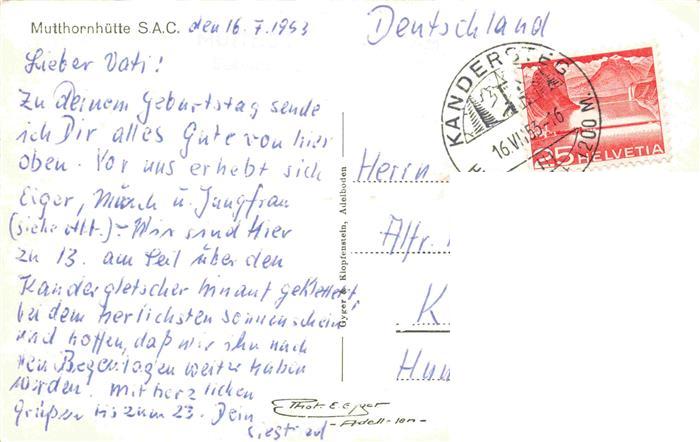 Mutthornhütte S.A.C. den 16.7.1953
Deutschland
Lieber Vati!
Zu Deinem Geburtstag sende
ich Dir alles Gute von hier
oben. Vor uns erhebt sich
Eiger, Mönch u. Jungfrau
(siehe Abb.) – Wir sind hier
zu 13. am Seil über den
Kandergletscher hinauf geklettert,
bei dem herlichsten Sonnenschein
und hoffen, daß wir ihn nach
den Regentagen weiter haben
würden. Mit herzlichen
Grüßen bis zum 23. Dein
Gyger & Klopfenstein, Adelboden
KANDERSTEG
1200 M.
16.VII.53–16
25 HELVETIA
Herrn
Alfr.
K
Phot. E. Gyger